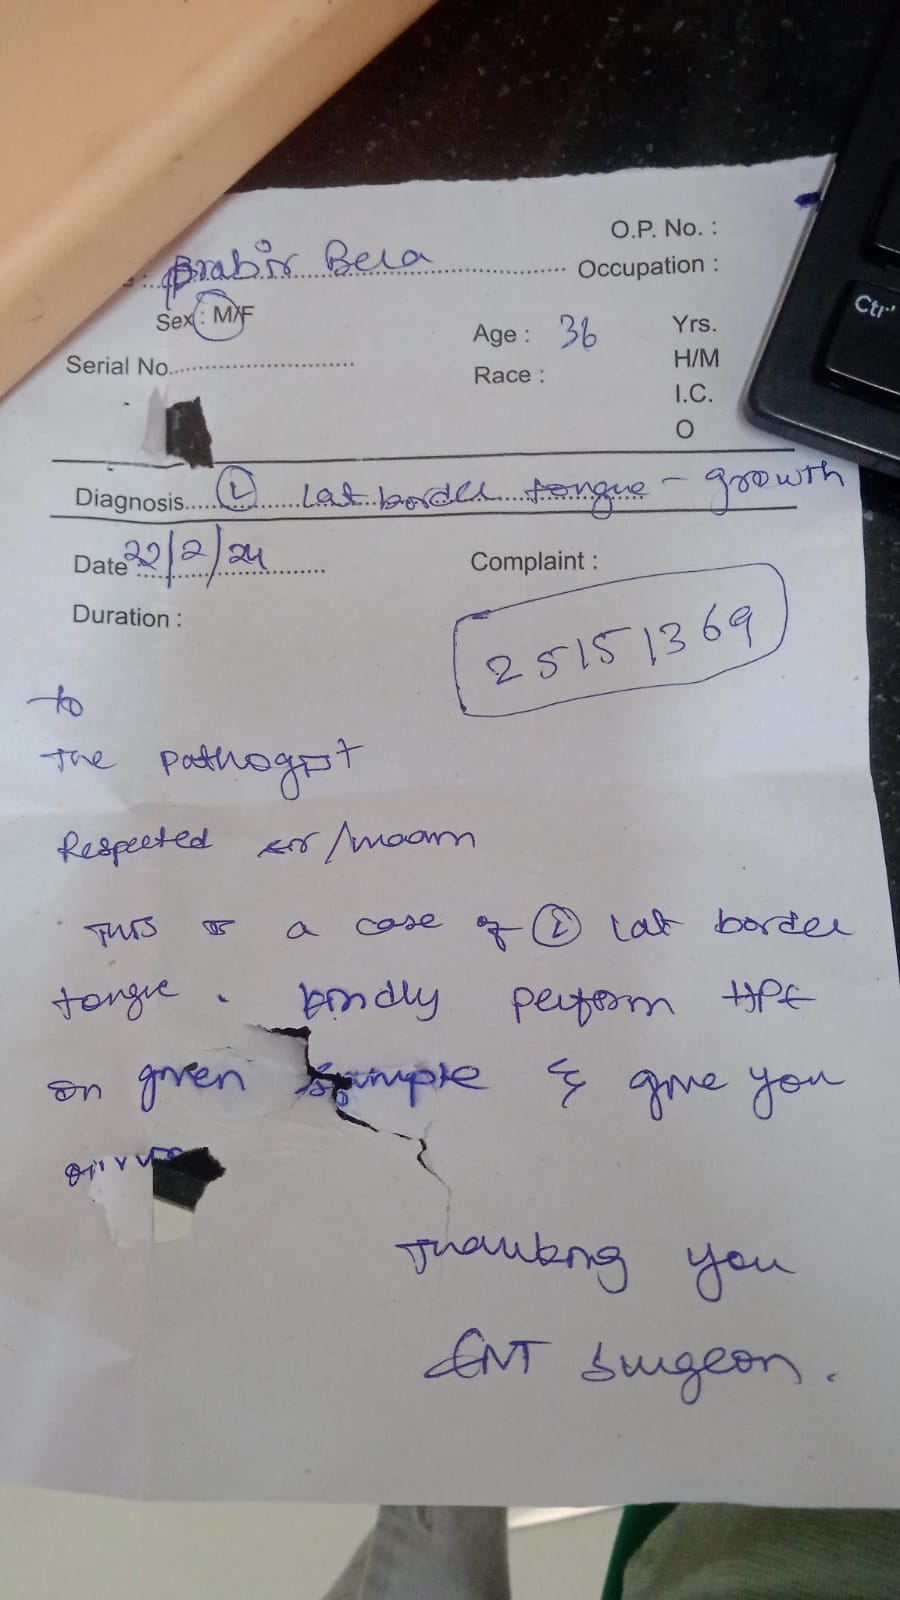 O.P. No. :
Prabir Bera
Occupation :
Sex : M/F
Age : 36 Yrs.
Serial No.
H/M
Race :
I.C.
O
Diagnosis Ⓛ lat border tongue - growth
Date 22/2/24
Complaint :
Duration :
25151369
to
The pathogist
Respected sir/maam
This is a case of Ⓛ lat border
tongue. kindly perform HPE
on given sample & give you
Thanking you
ENT Surgeon.
Ctrl